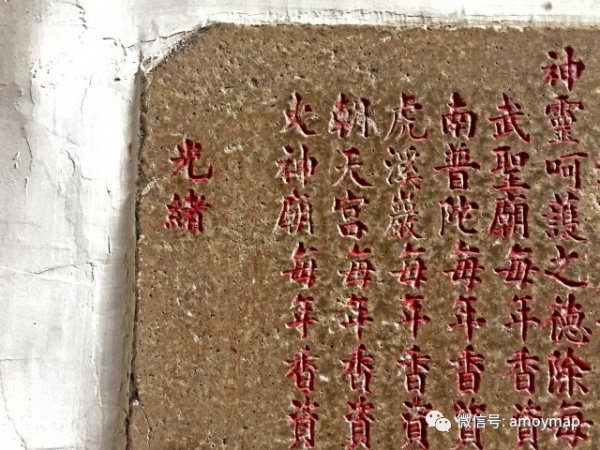 神靈呵護之德除每
武聖廟每年香資
南普陀每年香資
虎溪巖每年香資
朝天宮每年香資
火神廟每年香資
光緒
微信号: amoymap